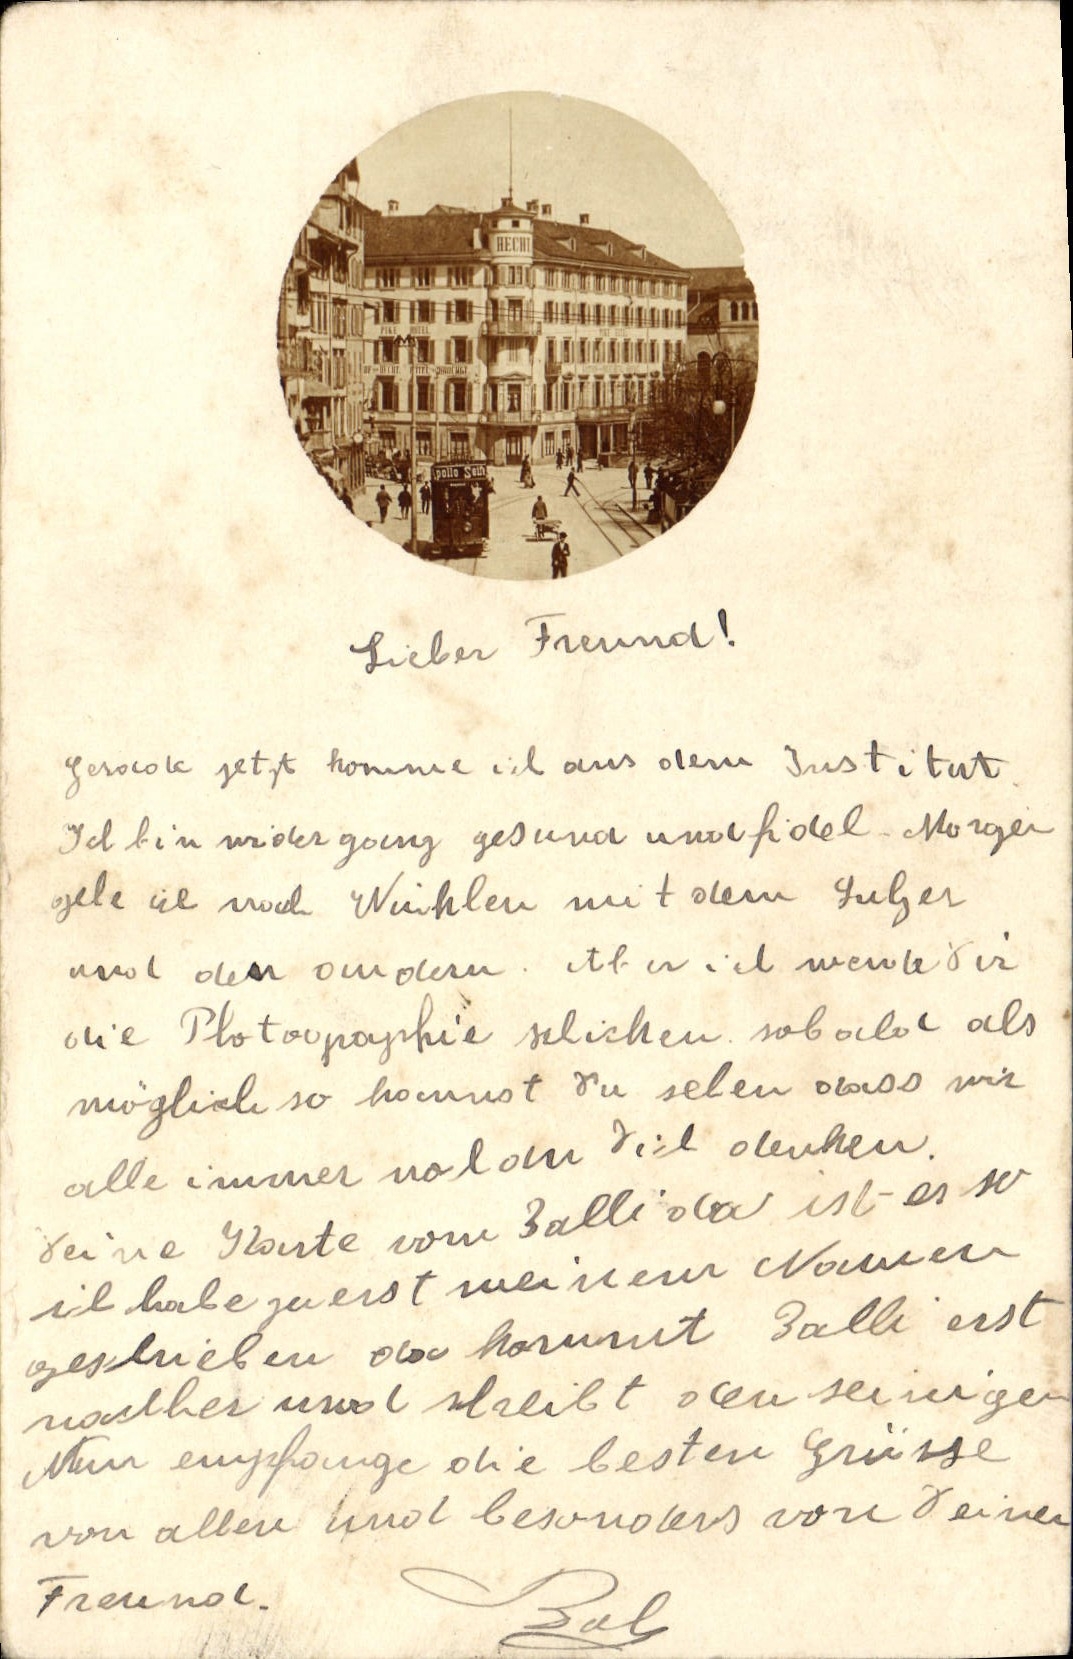 HECHT
PIKE HOTEL
HECHT
pollo Seif
Lieber Freund!
Gerade jetzt komme ich aus dem Institut
Ich bin wider ganz gesund und fidel. Morgen
gehe ich nach mit dem Sulzer
und den andern. Aber ich werde Dir
die Photographie schicken sobald als
möglich so kannst Du sehen dass wir
alle immer noch an Dich denken.
Deine Karte vom Balli da ist es so
ich habe zuerst meinem Namen
geschrieben da kommt Balli erst
nachher und schreibt den seinigen
Nun empfange die besten Grüsse
von allen und besonders von Deinem
Freund.